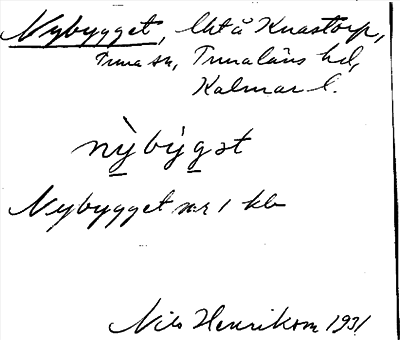 Nybygget, lht å Knastorp,
Tuna sn, Tunaläns hd,
Kalmar l.
nỳbýgət
Nybygget nr 1 kb
Nils Henrikson 1931